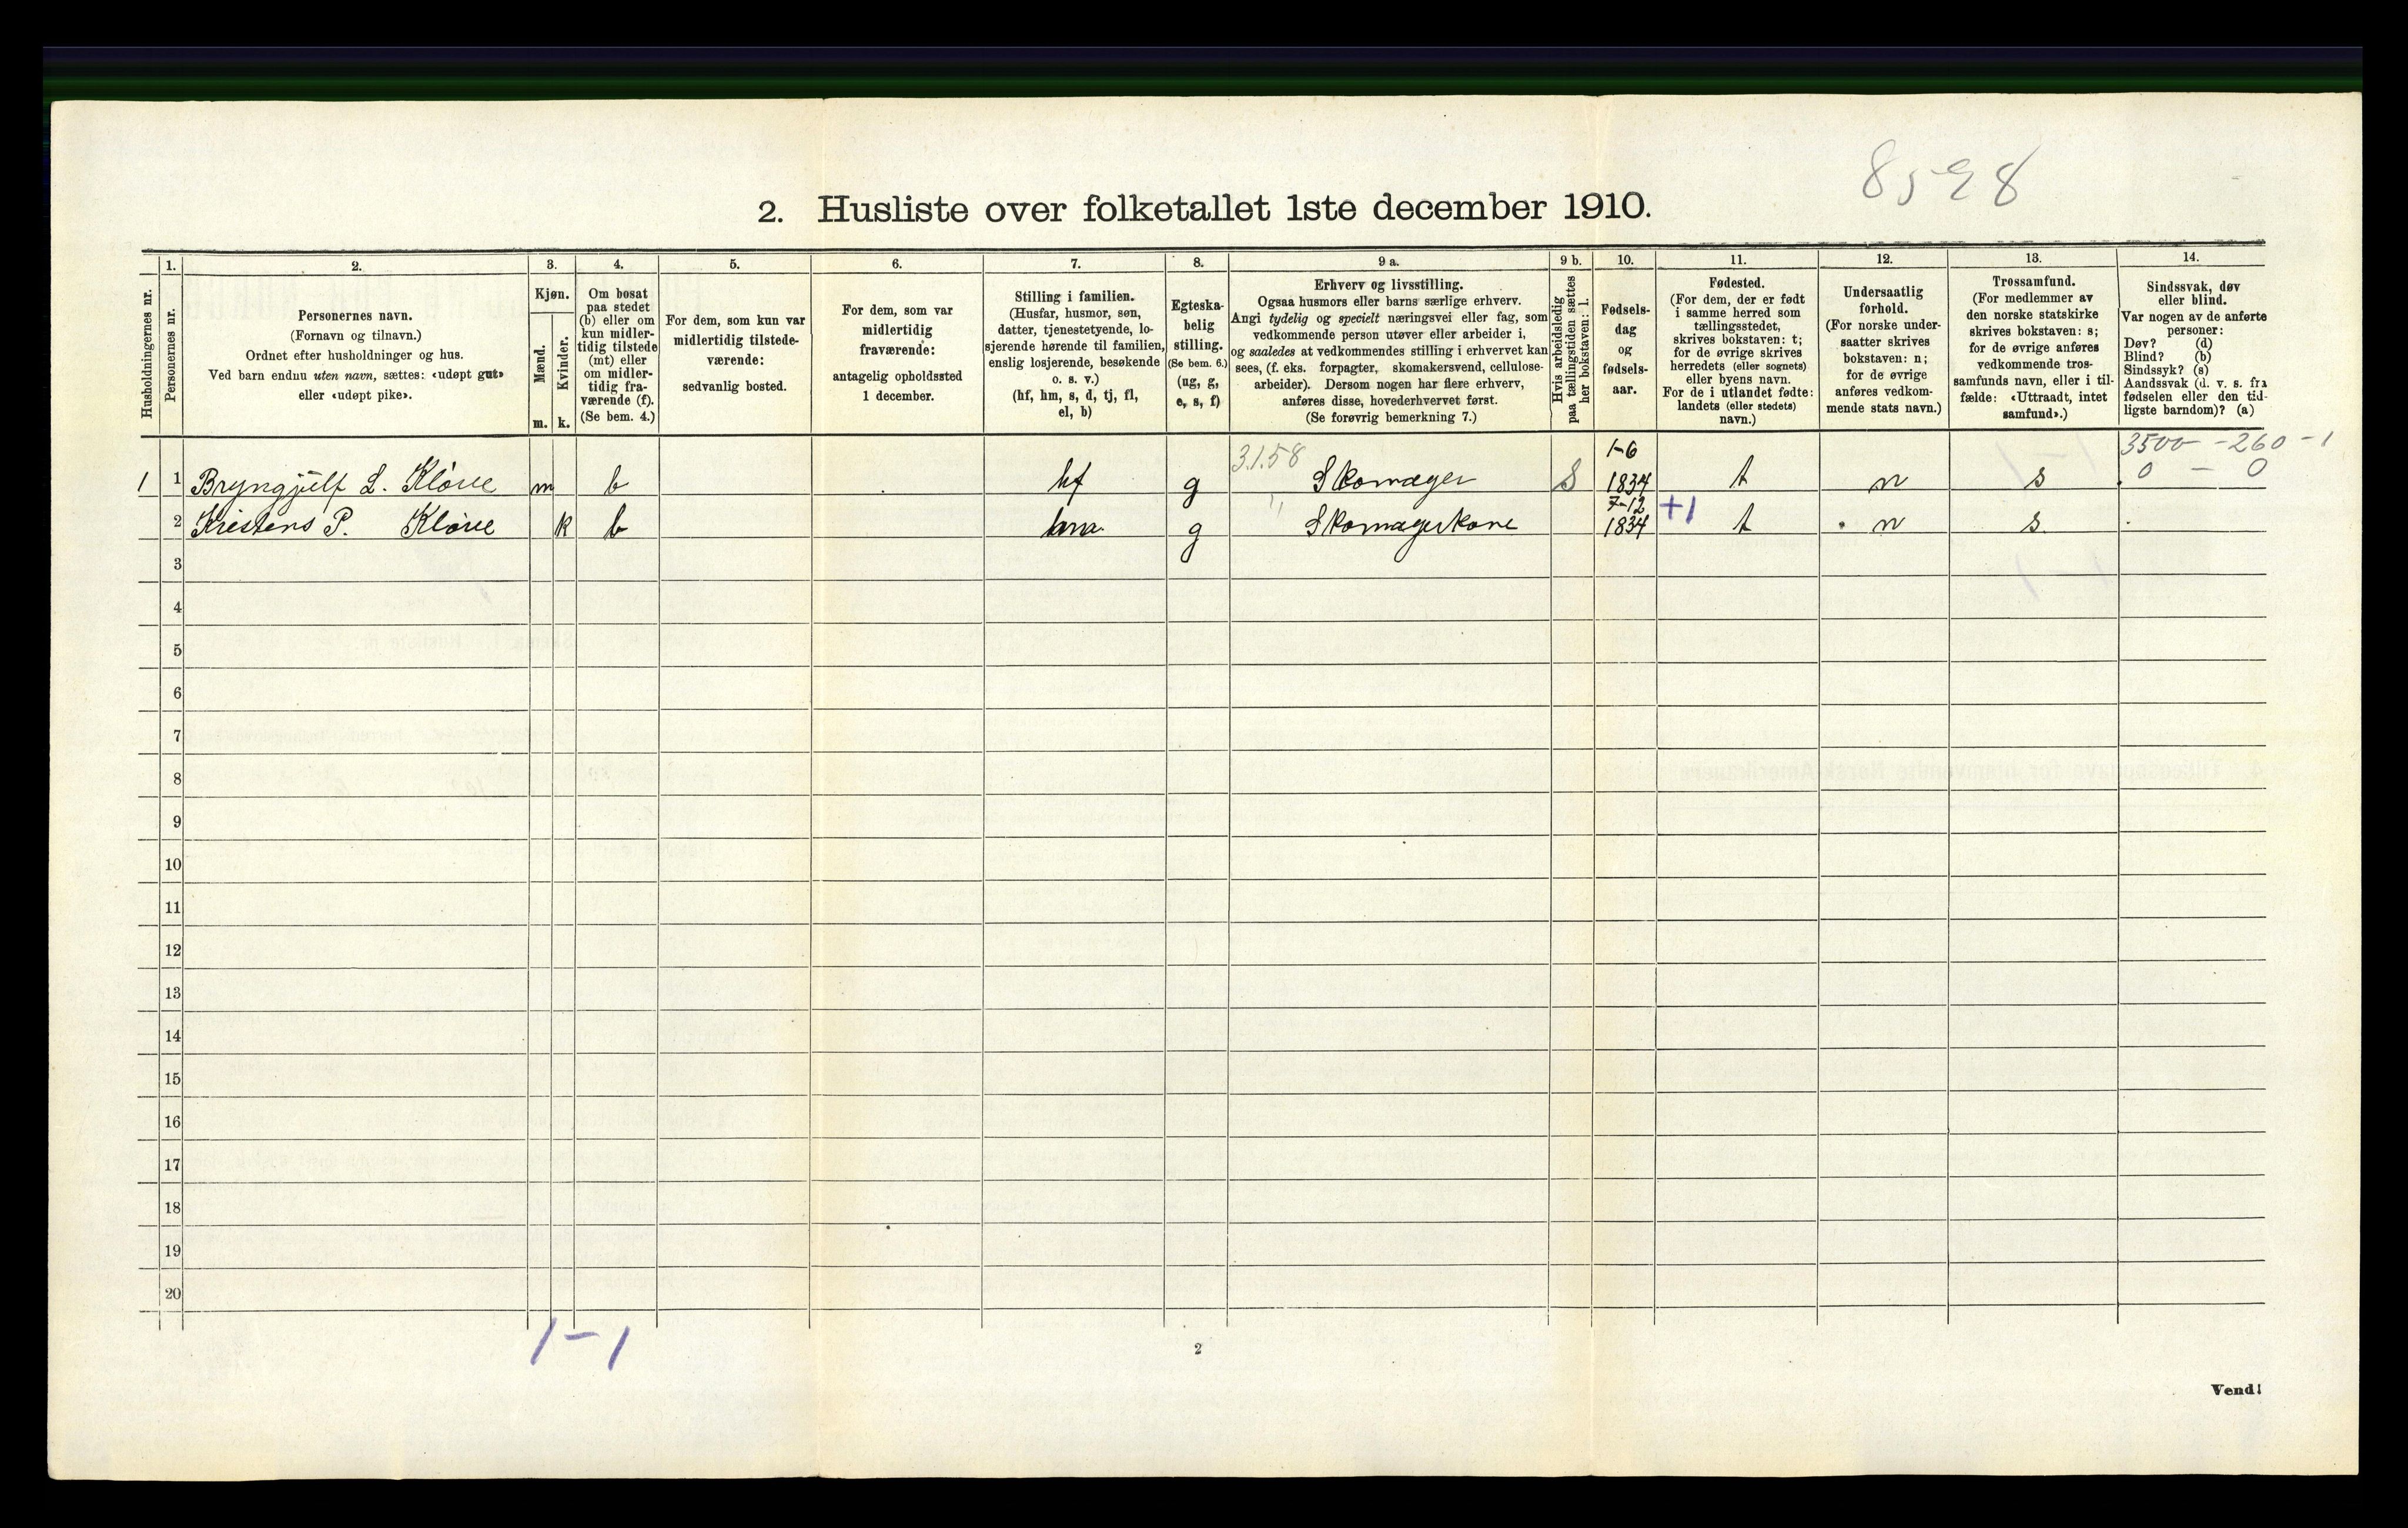 8598
2. Husliste over folketallet 1ste december 1910.
Husholdningernes nr.
1.
Personernes nr.
2.
Personernes navn.
(Fornavn og tilnavn.)
Ordnet efter husholdninger og hus.
Ved barn endnu uten navn, sættes: «udøpt gut»
eller «udøpt pike».
3.
Kjøn.
Mænd.
Kvinder.
m. k.
4.
Om bosat
paa stedet
(b) eller om
kun midler-
tidig tilstede
(mt) eller
om midler-
tidig fra-
værende (f).
(Se bem. 4.)
5.
For dem, som kun var
midlertidig tilstede-
værende:
sedvanlig bosted.
6.
For dem, som var
midlertidig
fraværende:
antagelig opholdssted
1 december.
7.
Stilling i familien.
(Husfar, husmor, søn,
datter, tjenestetyende, lo-
sjerende hørende til familien,
enslig losjerende, besøkende
o. s. v.)
(hf, hm, s, d, tj, fl,
el, b)
8.
Egteska-
belig
stilling.
(Se bem. 6.)
(ug, g,
e, s, f)
9 a.
Erhverv og livsstilling.
Ogsaa husmors eller barns særlige erhverv.
Angi tydelig og specielt næringsvei eller fag, som
vedkommende person utøver eller arbeider i,
og saaledes at vedkommendes stilling i erhvervet kan
sees, (f. eks. forpagter, skomakersvend, cellulose-
arbeider). Dersom nogen har flere erhverv,
anføres disse, hovederhvervet først.
(Se forøvrig bemerkning 7.)
9 b.
Hvis arbeidsledig
paa tællingstiden sættes
her bokstaven: l.
10.
Fødsels-
dag
og
fødsels-
aar.
11.
Fødested.
(For dem, der er født
i samme herred som
tællingsstedet,
skrives bokstaven: t;
for de øvrige skrives
herredets (eller sognets)
eller byens navn.
For de i utlandet fødte:
landets (eller stedets)
navn.)
12.
Undersaatlig
forhold.
(For norske under-
saatter skrives
bokstaven: n;
for de øvrige
anføres vedkom-
mende stats navn.)
13.
Trossamfund.
(For medlemmer av
den norske statskirke
skrives bokstaven: s;
for de øvrige anføres
vedkommende tros-
samfunds navn, eller i til-
fælde: «Uttraadt, intet
samfund».)
14.
Sindssvak, døv
eller blind.
Var nogen av de anførte
personer:
Døv? (d)
Blind? (b)
Sindssyk? (s)
Aandssvak (d. v. s. fra
fødselen eller den tid-
ligste barndom)? (a)
3.1.58 1-6 3500 - 260 - 1
1 1 Bryngjulf L. Kløve m b hf g Skomager S 1834 t n s 0 - 0
" 7-12
2 Kristens P. Kløve k b hm g Skomagerkone 1834 +1 t n s
3
4
5
6
7
8
9
10
11
12
13
14
15
16
17
18
19
20
1-1
2
Vend!